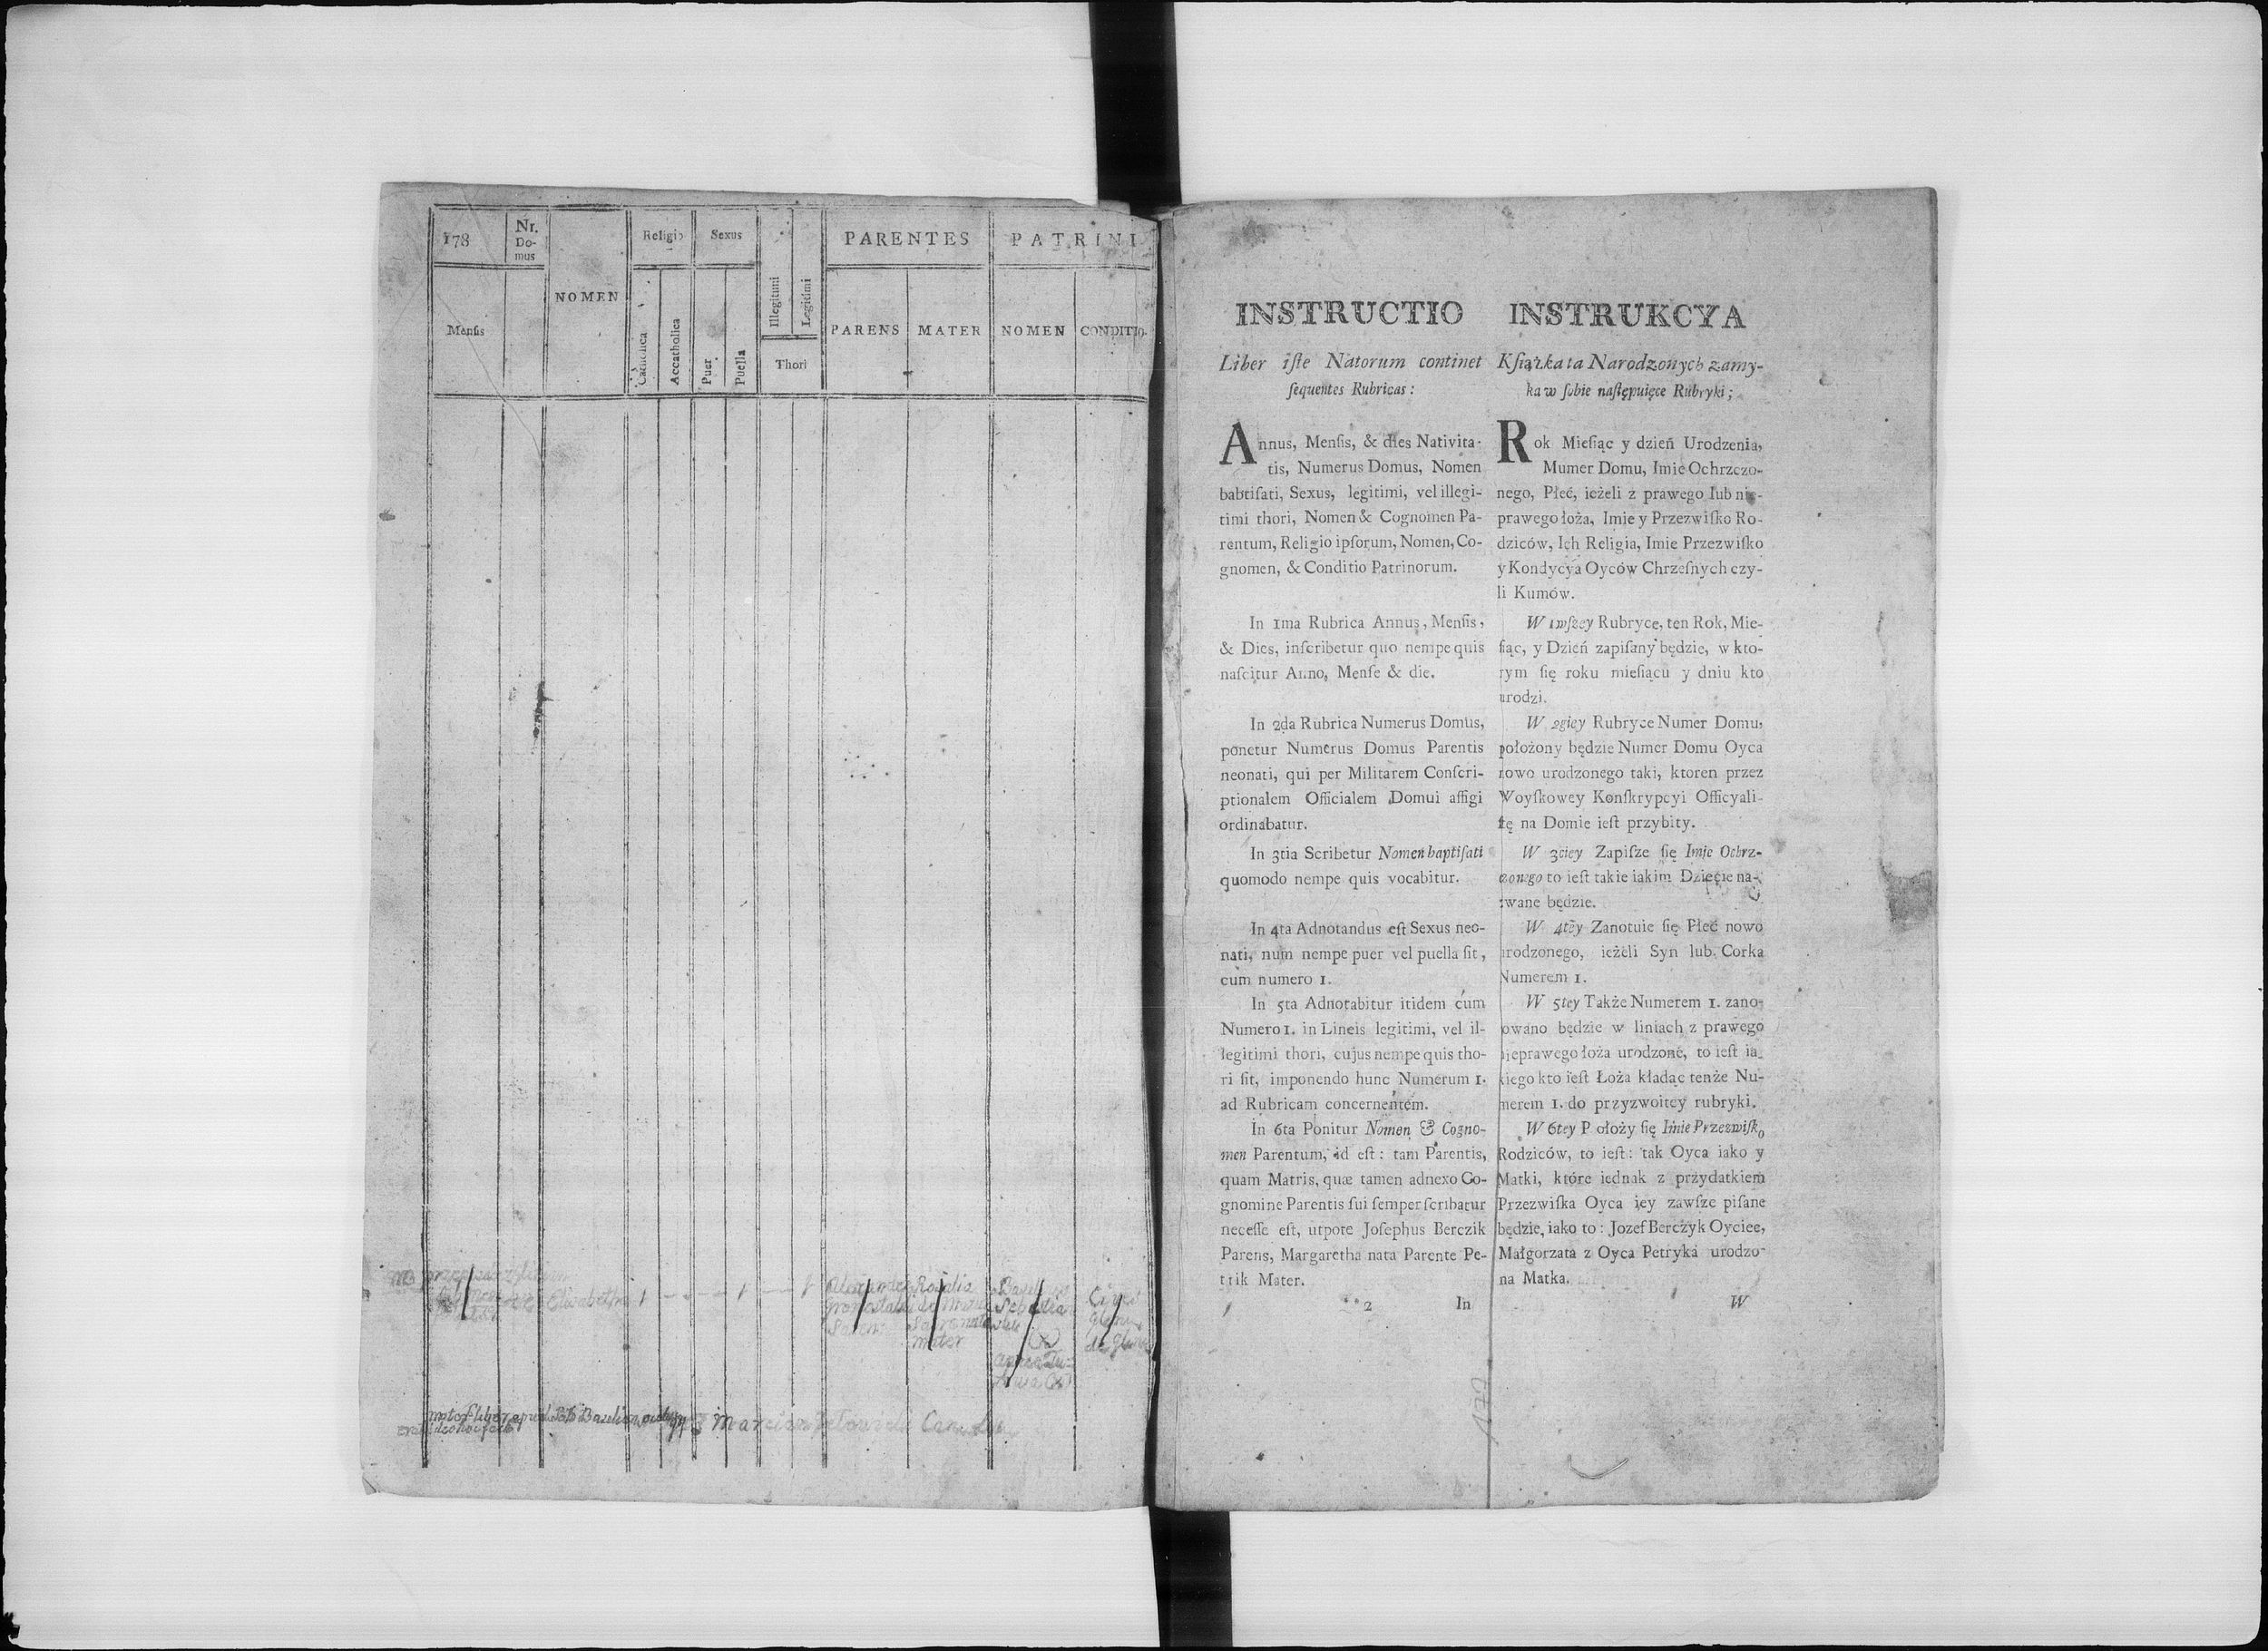 178
Nr.
Do-
mus
NOMEN
Religio
Sexus
PARENTES
PATRINI
Mensis
Catholica
Accatholica
Puer
Puella
Illegitimi
Legitimi
Thori
PARENS
MATER
NOMEN
CONDITIO
Elisabetha
Rosalia
mater
INSTRUCTIO
Liber iſte Natorum continet
ſequentes Rubricas:
Annus, Menſis, & dies Nativita-
tis, Numerus Domus, Nomen
babtiſati, Sexus, legitimi, vel illegi-
timi thori, Nomen & Cognomen Pa-
rentum, Religio ipſorum, Nomen, Co-
gnomen, & Conditio Patrinorum.
In 1ma Rubrica Annus, Menſis,
& Dies, inſcribetur quo nempe quis
naſcitur Anno, Menſe & die.
In 2da Rubrica Numerus Domus,
ponetur Numerus Domus Parentis
neonati, qui per Militarem Conſcri-
ptionalem Officialem Domui affigi
ordinabatur.
In 3tia Scribetur Nomen baptiſati
quomodo nempe quis vocabitur.
In 4ta Adnotandus eſt Sexus neo-
nati, num nempe puer vel puella ſit,
cum numero 1.
In 5ta Adnotabitur itidem cum
Numero 1. in Lineis legitimi, vel il-
legitimi thori, cujus nempe quis tho-
ri ſit, imponendo hunc Numerum 1.
ad Rubricam concernentem.
In 6ta Ponitur Nomen & Cogno-
men Parentum, id eſt: tam Parentis,
quam Matris, quæ tamen adnexo Co-
gnomine Parentis ſui ſemper ſcribatur
neceſſe eſt, utpote Joſephus Berczik
Parens, Margaretha nata Parente Pe-
ttik Mater.
2 In
INSTRUKCYA
Kſiążka ta Narodzonych zamy-
ka w ſobie naſtępuięce Rubryki;
Rok Mieſiąc y dzień Urodzenia,
Mumer Domu, Imie Ochrzczo-
nego, Płeć, ieżeli z prawego lub nie-
prawego łoża, Imie y Przezwiſko Ro-
dziców, Ich Religia, Imie Przezwiſko
y Kondycya Oyców Chrzeſnych czy-
li Kumów.
W 1wſzey Rubryce, ten Rok, Mie-
ſiąc, y Dzień zapiſany będzie, w kto-
rym ſię roku mieſiącu y dniu kto
urodzi.
W 2giey Rubryce Numer Domu,
położony będzie Numer Domu Oyca
nowo urodzonego taki, ktoren przez
Woyſkowey Konſkrypcyi Officyali-
ſtę na Domie ieſt przybity.
W 3ciey Zapiſze ſię Imie Ochrz-
czonego to ieſt takie iakim Dziecie na-
zwane będzie.
W 4tey Zanotuie ſię Płeć nowo
urodzonego, ieżeli Syn lub Corka
Numerem 1.
W 5tey Także Numerem 1. zano-
towano będzie w liniach z prawego
nieprawego łoża urodzone, to ieſt ia-
kiego kto ieſt Łoża kładąc tenże Nu-
merem 1. do przyzwoitey rubryki.
W 6tey P ołoży ſię Imie Przezwiſko
Rodziców, to ieſt: tak Oyca iako y
Matki, które iednak z przydatkiem
Przezwiſka Oyca iey zawſze piſane
będzie, iako to: Jozef Berczyk Oyciec,
Małgorzata z Oyca Petryka urodzo-
na Matka.
W